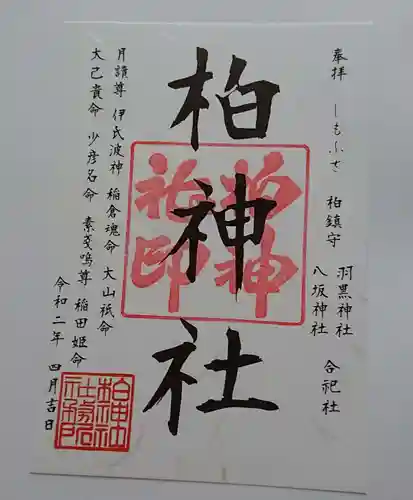 奉拝 しもふさ 柏鎮守 羽黒神社 八坂神社 合祀社
柏神社
柏神社印
月讀尊 伊氐波神 稲倉魂命 大山祇命
大己貴命 少彦名命 素戔嗚尊 稲田姫命
令和二年 四月吉日